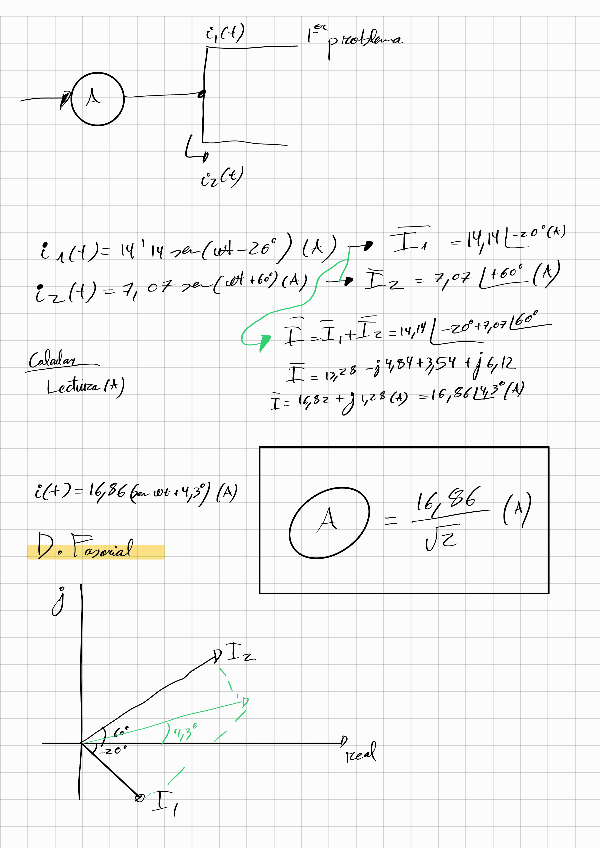 i₁(t) 1er problema
A
i₂(t)
i₁(t) = 14'14 sen(wt-20°) (A) → I̅₁ = 14,14∠-20° (A)
i₂(t) = 7,07 sen(wt+60°) (A) → I̅₂ = 7,07∠+60° (A)
I̅ = I̅₁ + I̅₂ = 14,14∠-20° + 7,07∠60°
Calcular
Lectura (A)
I̅ = 13,28 - j4,84 + 3,54 + j6,12
I̅ = 16,82 + j1,28 (A) = 16,86∠4,3° (A)
i(t) = 16,86 (sen wt + 4,3°) (A)
A = 16,86/√2 (A)
D. Fasorial
j
I₂
60°
20°
4,3°
real
I₁